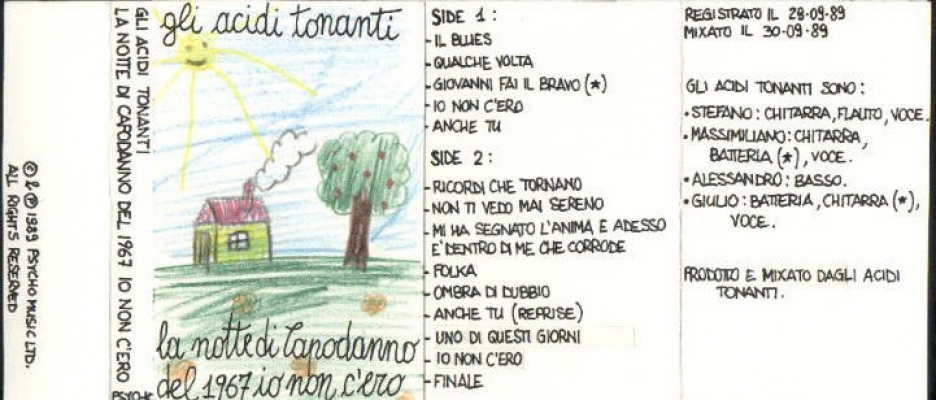 © & ℗ 1989 PSYCHO MUSIC LTD.
ALL RIGHTS RESERVED
GLI ACIDI TONANTI
LA NOTTE DI CAPODANNO DEL 1967 IO NON C'ERO
gli acidi tonanti
la notte di Capodanno
del 1967 io non c'ero
SIDE 1:
- IL BLUES
- QUALCHE VOLTA
- GIOVANNI FAI IL BRAVO (*)
- IO NON C'ERO
- ANCHE TU
SIDE 2:
- RICORDI CHE TORNANO
- NON TI VEDO MAI SERENO
- MI HA SEGNATO L'ANIMA E ADESSO
E' DENTRO DI ME CHE CORRODE
- FOLKA
- OMBRA DI DUBBIO
- ANCHE TU (REPRISE)
- UNO DI QUESTI GIORNI
- IO NON C'ERO
- FINALE
REGISTRATO IL 29-09-89
MIXATO IL 30-09-89
GLI ACIDI TONANTI SONO:
• STEFANO: CHITARRA, FLAUTO, VOCE.
• MASSIMILIANO: CHITARRA,
BATTERIA (*), VOCE.
• ALESSANDRO: BASSO.
• GIULIO: BATTERIA, CHITARRA (*),
VOCE.
PRODOTTO E MIXATO DAGLI ACIDI
TONANTI.